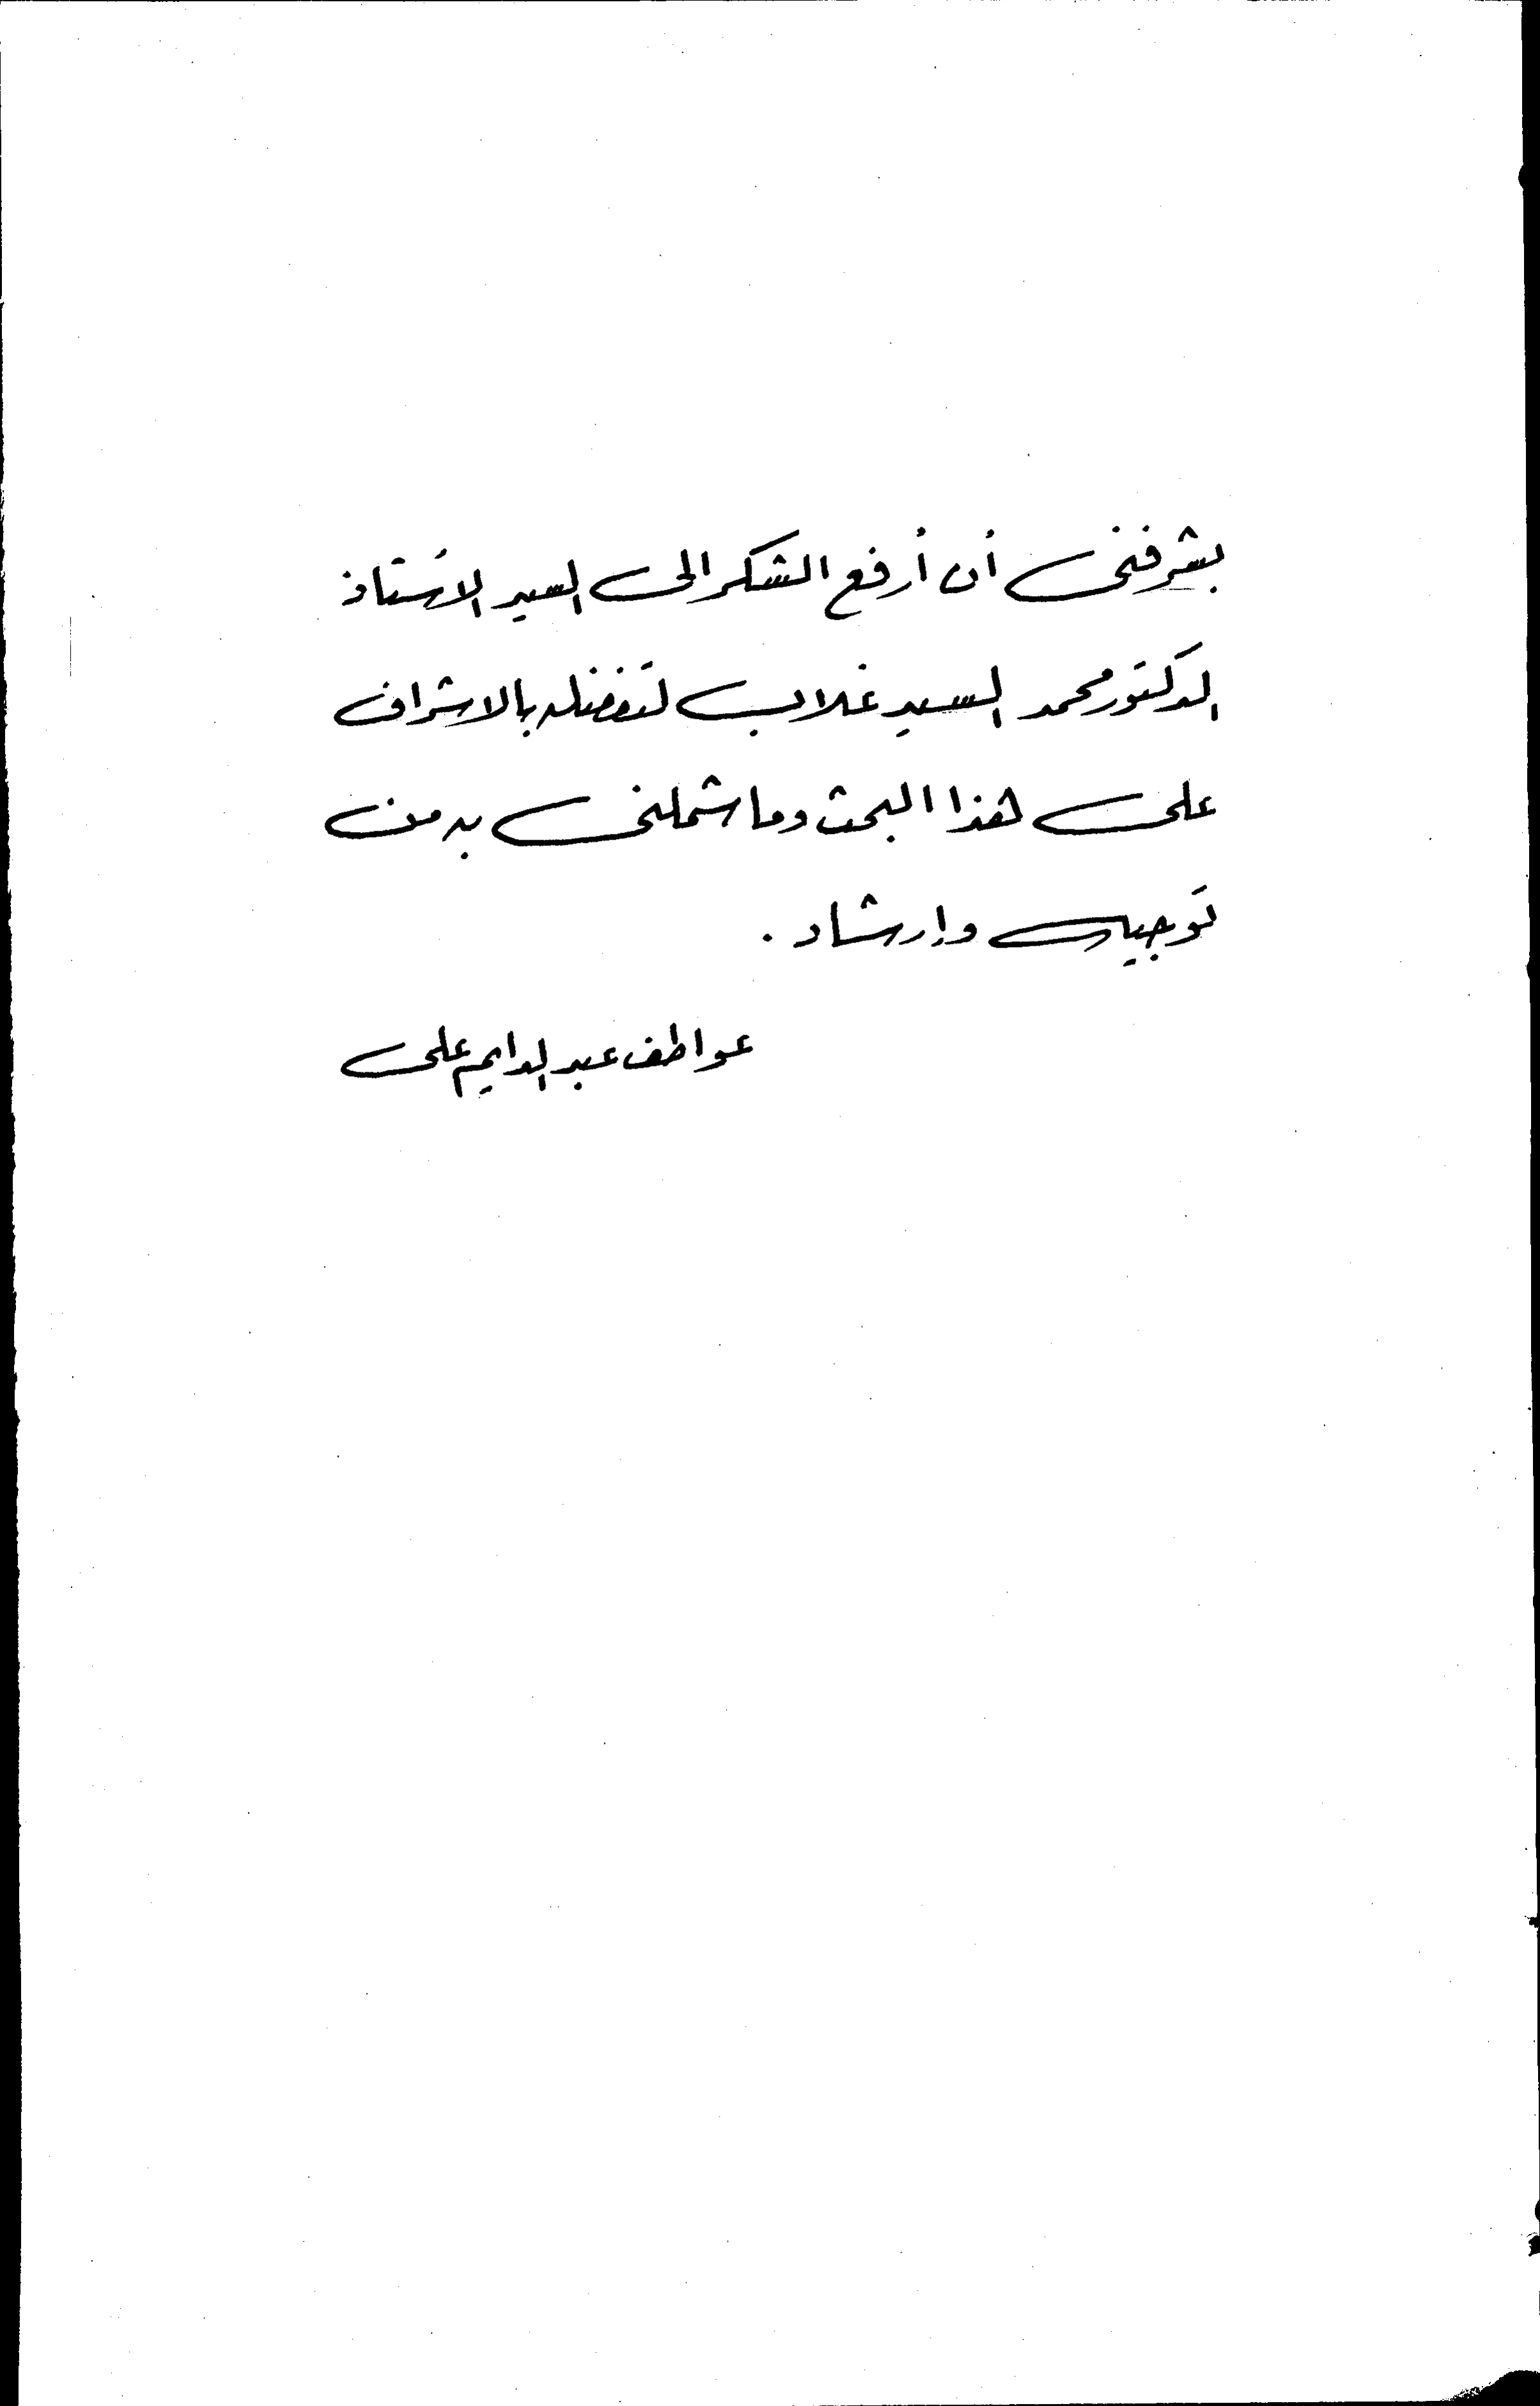 يشرفنى أن أرفع الشكر الى السيد الاستاذ
الدكتور محمد السيد غلاب لتفضله بالاشراف
على هذا البحث وما شملنى به من
توجيه وإرشاد .
عواطف عبد الدايم على